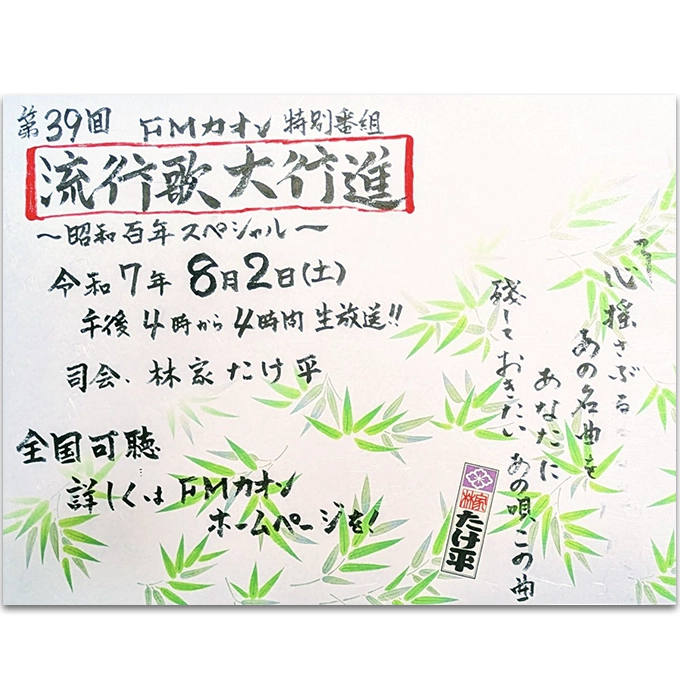 第39回 FMカオン 特別番組
流行歌大行進
～昭和百年スペシャル～
令和7年 8月2日(土)
午後4時から4時間生放送!!
司会、林家たけ平
全国可聴
詳しくはFMカオン
ホームページを!
心揺さぶる
あの名曲を
あなたに
残しておきたい あの唄この曲
林家
たけ平